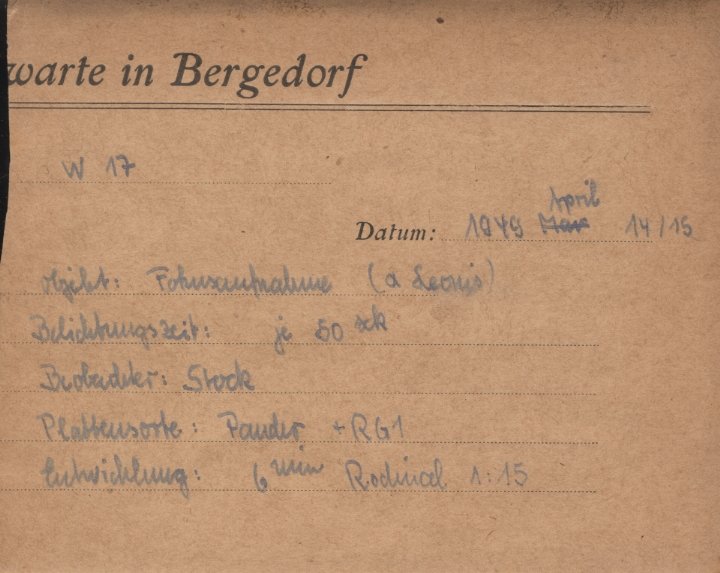 warte in Bergedorf
W 17
April
Datum: 1949 Mai 14/15
Objekt: Fokusaufnahme (α Leonis)
Belichtungszeit: je 50 sek
Beobachter: Stock
Plattensorte: Pander + RG1
Entwicklung: 6 min Rodinal 1:15